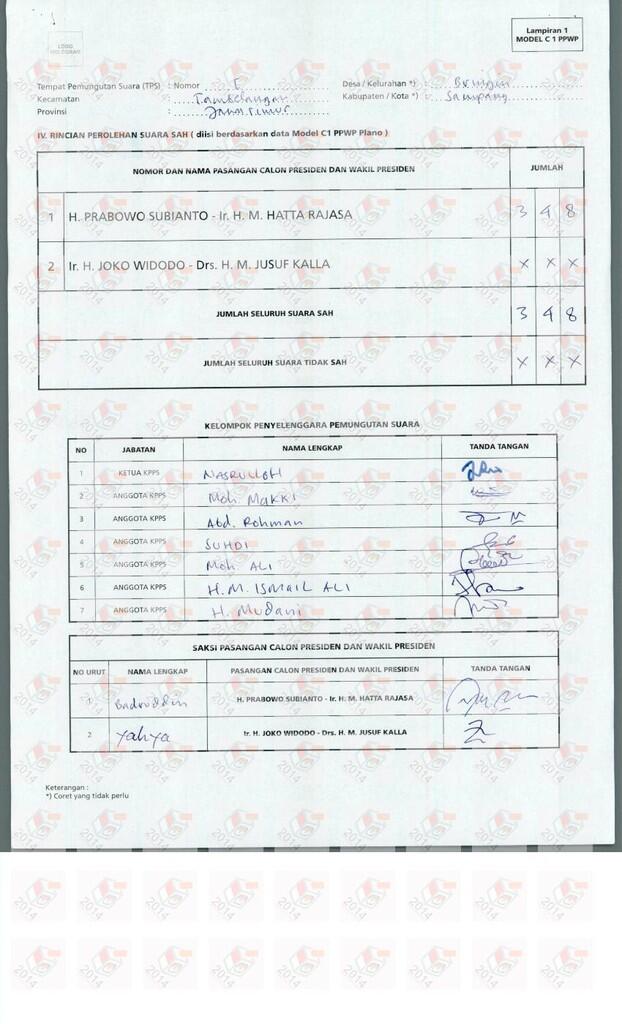 Lampiran 1
MODEL C 1 PPWP
Tempat Pemungutan Suara (TPS) : Nomor I Desa / Kelurahan *) : Bringin
Kecamatan : Tambelangan Kabupaten / Kota *) : Sampang
Provinsi : Jawa Timur
IV. RINCIAN PEROLEHAN SUARA SAH ( diisi berdasarkan data Model C1 PPWP Plano )
NOMOR DAN NAMA PASANGAN CALON PRESIDEN DAN WAKIL PRESIDEN JUMLAH
1 H. PRABOWO SUBIANTO - Ir. H. M. HATTA RAJASA 3 4 8
2 Ir. H. JOKO WIDODO - Drs. H. M. JUSUF KALLA X X X
JUMLAH SELURUH SUARA SAH 3 4 8
JUMLAH SELURUH SUARA TIDAK SAH X X X
KELOMPOK PENYELENGGARA PEMUNGUTAN SUARA
NO JABATAN NAMA LENGKAP TANDA TANGAN
1 KETUA KPPS NASRULLOH
2 ANGGOTA KPPS Moh. Makki
3 ANGGOTA KPPS Abd. Rohman
4 ANGGOTA KPPS SUHDI
5 ANGGOTA KPPS Moh. ALI
6 ANGGOTA KPPS H.M. ISMAIL ALI
7 ANGGOTA KPPS H. Mudani
SAKSI PASANGAN CALON PRESIDEN DAN WAKIL PRESIDEN
NO URUT NAMA LENGKAP PASANGAN CALON PRESIDEN DAN WAKIL PRESIDEN TANDA TANGAN
1 Badruddin H. PRABOWO SUBIANTO - Ir. H. M. HATTA RAJASA
2 Yahya Ir. H. JOKO WIDODO - Drs. H. M. JUSUF KALLA
Keterangan :
*) Coret yang tidak perlu
2014